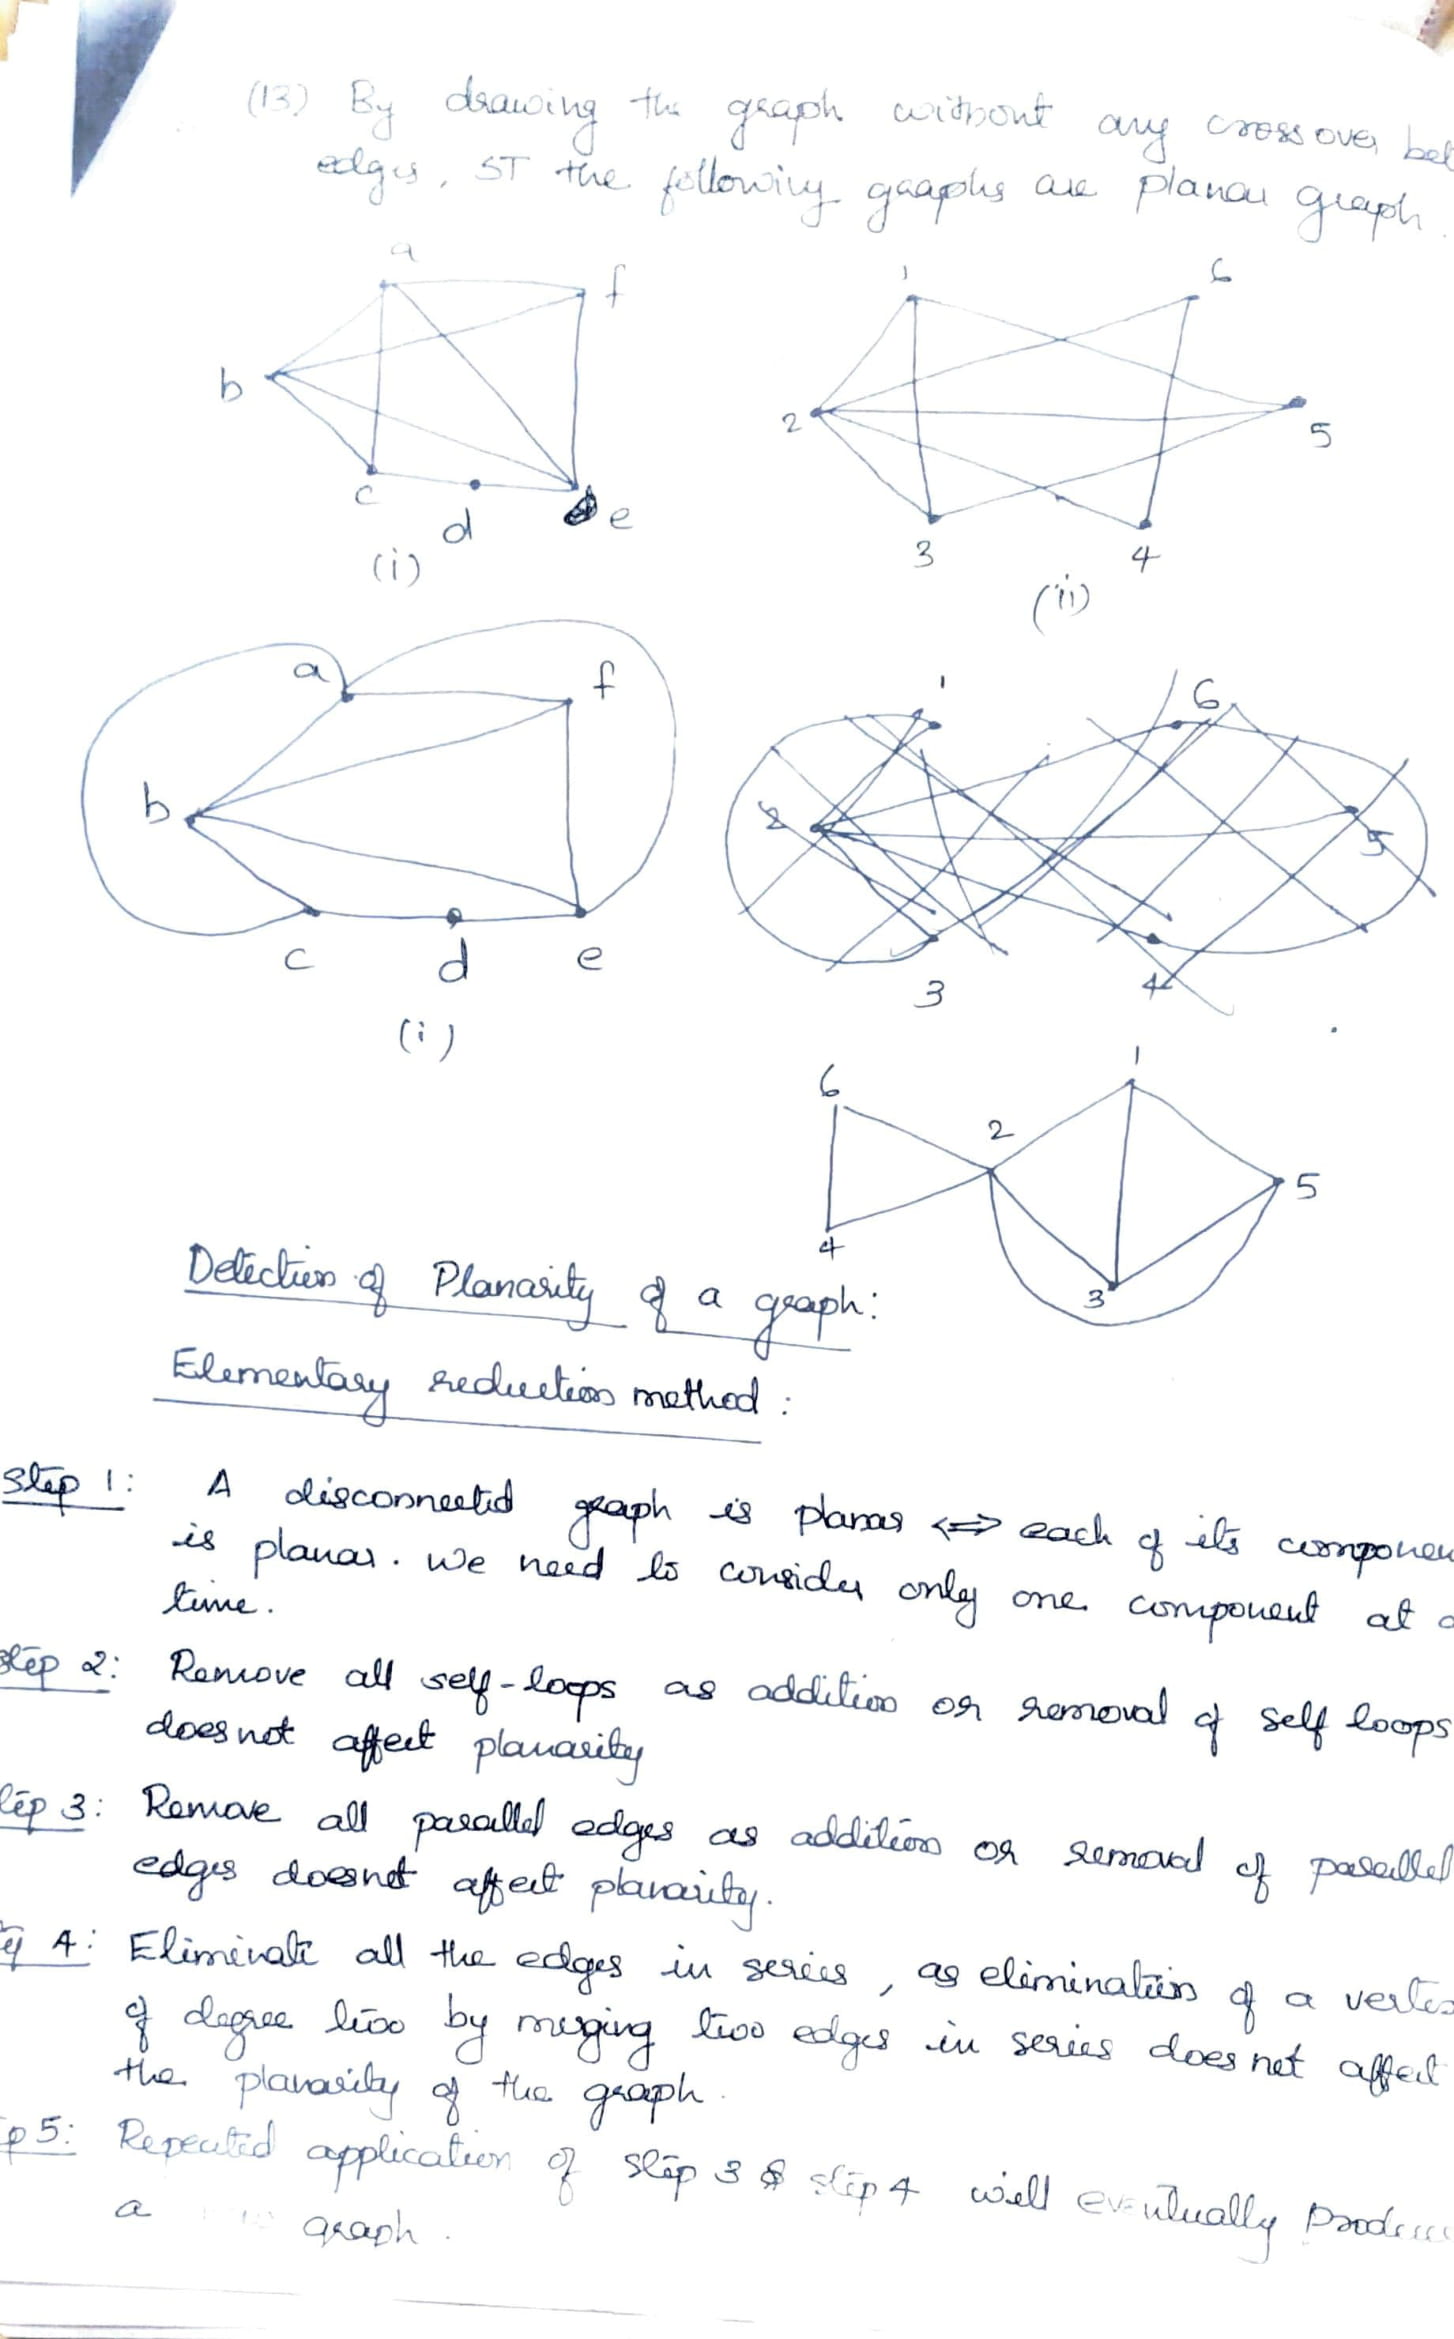 (13) By drawing the graph without any crossover bet
edges, ST the following graphs are planar graph.
a
f
b
c
d
e
(i)
1
6
2
5
3
4
(ii)
a
f
b
c
d
e
(i)
1
6
2
5
3
4
6
1
2
5
4
3
Detection of Planarity of a graph:
Elementary reduction method :
Step 1: A disconnected graph is planar <=> each of its componen
is planar. we need to consider only one component at a
time.
Step 2: Remove all self-loops as addition or removal of self loops
does not affect planarity
tep 3: Remove all parallel edges as addition or removal of parallel
edges doesnot affect planarity.
4: Eliminate all the edges in series, as elimination of a vertex
of degree two by merging two edges in series does not affect
the planarity of the graph.
p 5: Repeated application of step 3 & step 4 will eventually produce
a graph.